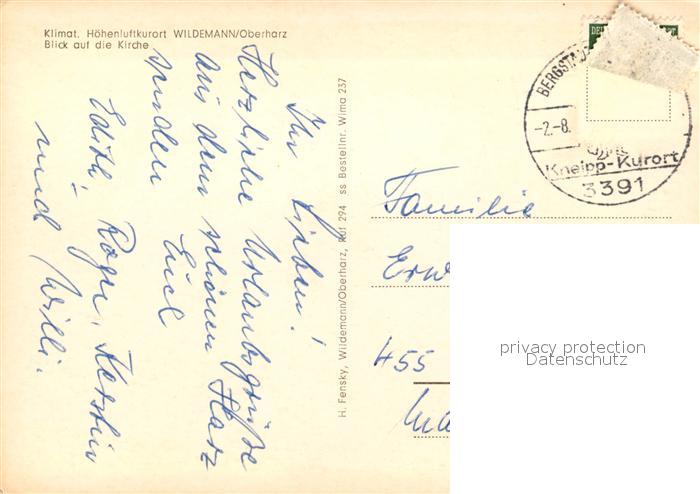 Klimat. Höhenluftkurort WILDEMANN/Oberharz
Blick auf die Kirche
Ihr Lieben!
Herzliche Urlaubsgrüße
aus dem schönen Harz
senden Euch
Edith, Roger, Kerstin
und Willi.
H. Fensky, Wildemann/Oberharz, Ruf 294 ss Bestellnr. Wima 237
BERGSTAD
-2.-8.
Kneipp-Kurort
3391
Familie
Erw
455
privacy protection
Datenschutz